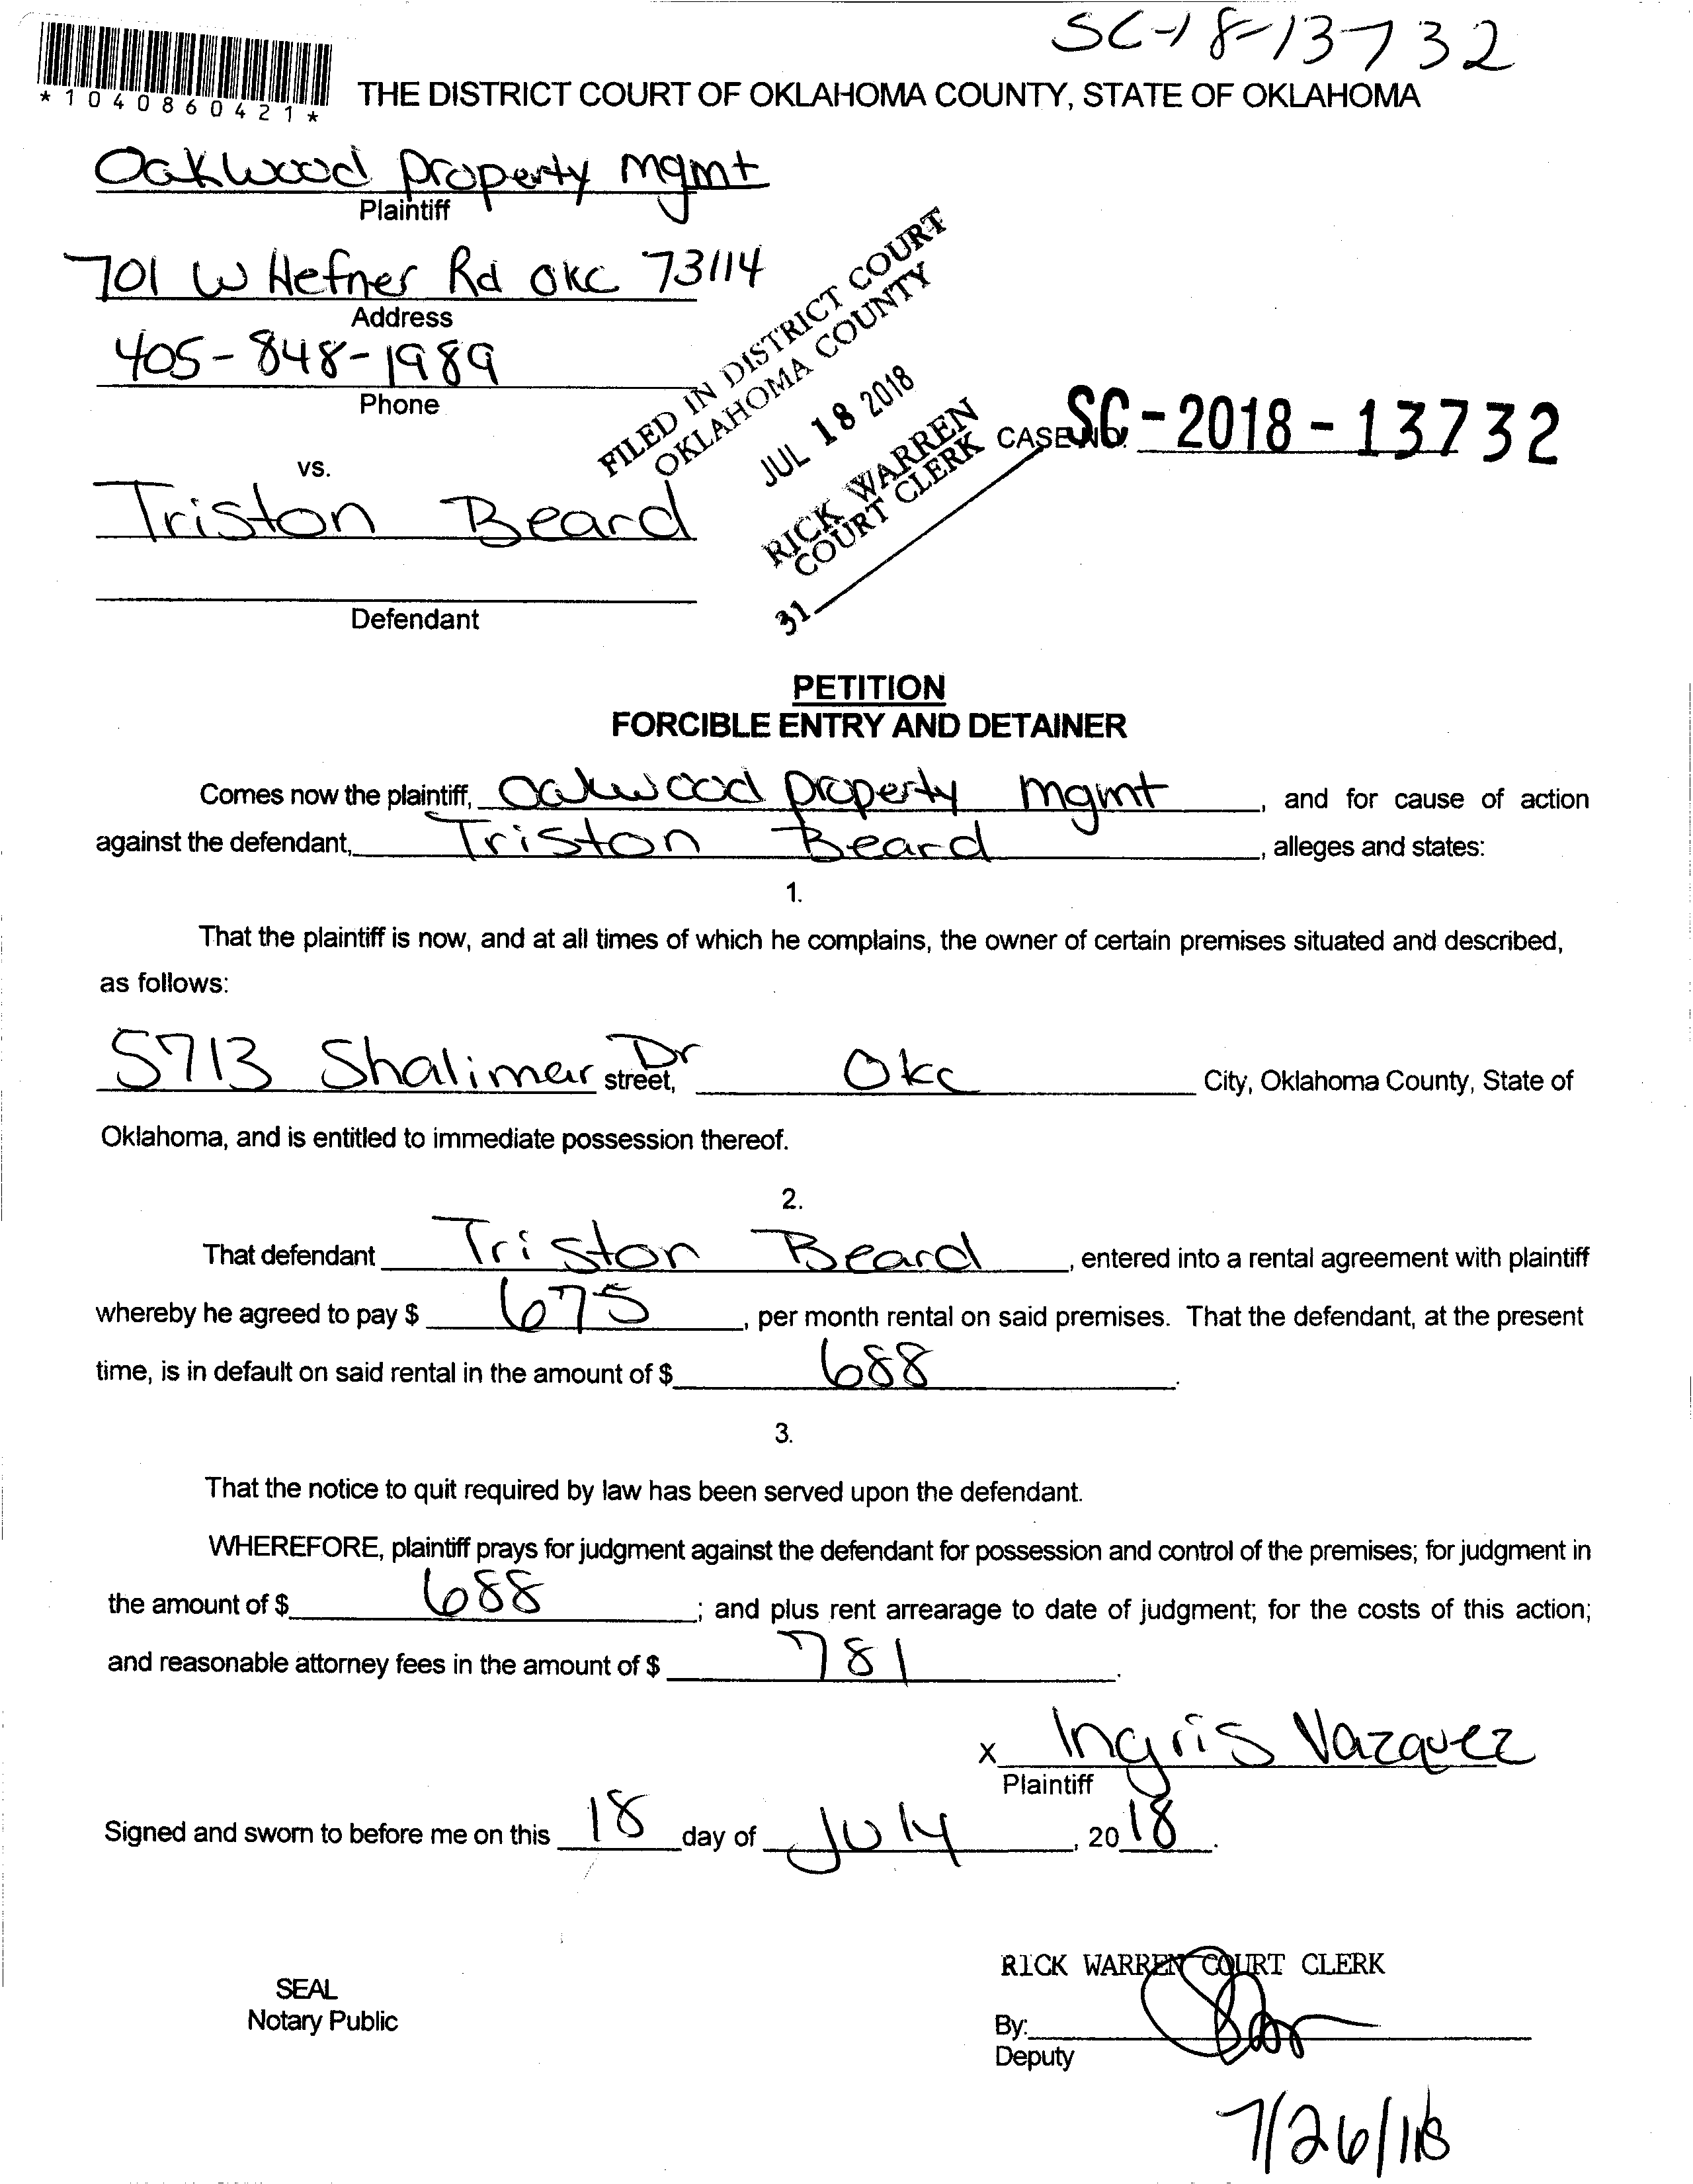 SC-18-13732
*1040860421*
THE DISTRICT COURT OF OKLAHOMA COUNTY, STATE OF OKLAHOMA
Oakwood property mgmt
Plaintiff
701 W Hefner Rd OKC 73114
Address
405-848-1989
Phone
FILED IN DISTRICT COURT
OKLAHOMA COUNTY
JUL 18 2018
RICK WARREN
COURT CLERK
31
CASE NO. SC-2018-13732
vs.
Triston Beard
Defendant
PETITION
FORCIBLE ENTRY AND DETAINER
Comes now the plaintiff, Oakwood property mgmt, and for cause of action
against the defendant, Triston Beard, alleges and states:
1.
That the plaintiff is now, and at all times of which he complains, the owner of certain premises situated and described,
as follows:
5713 Shalimar Dr street, OKC City, Oklahoma County, State of
Oklahoma, and is entitled to immediate possession thereof.
2.
That defendant Triston Beard, entered into a rental agreement with plaintiff
whereby he agreed to pay $ 675, per month rental on said premises. That the defendant, at the present
time, is in default on said rental in the amount of $ 688.
3.
That the notice to quit required by law has been served upon the defendant.
WHEREFORE, plaintiff prays for judgment against the defendant for possession and control of the premises; for judgment in
the amount of $ 688; and plus rent arrearage to date of judgment; for the costs of this action;
and reasonable attorney fees in the amount of $ 781.
x Ingris Vazquez
Plaintiff
Signed and sworn to before me on this 18 day of July, 2018.
RICK WARREN COURT CLERK
SEAL
Notary Public
By:
Deputy
7/26/18